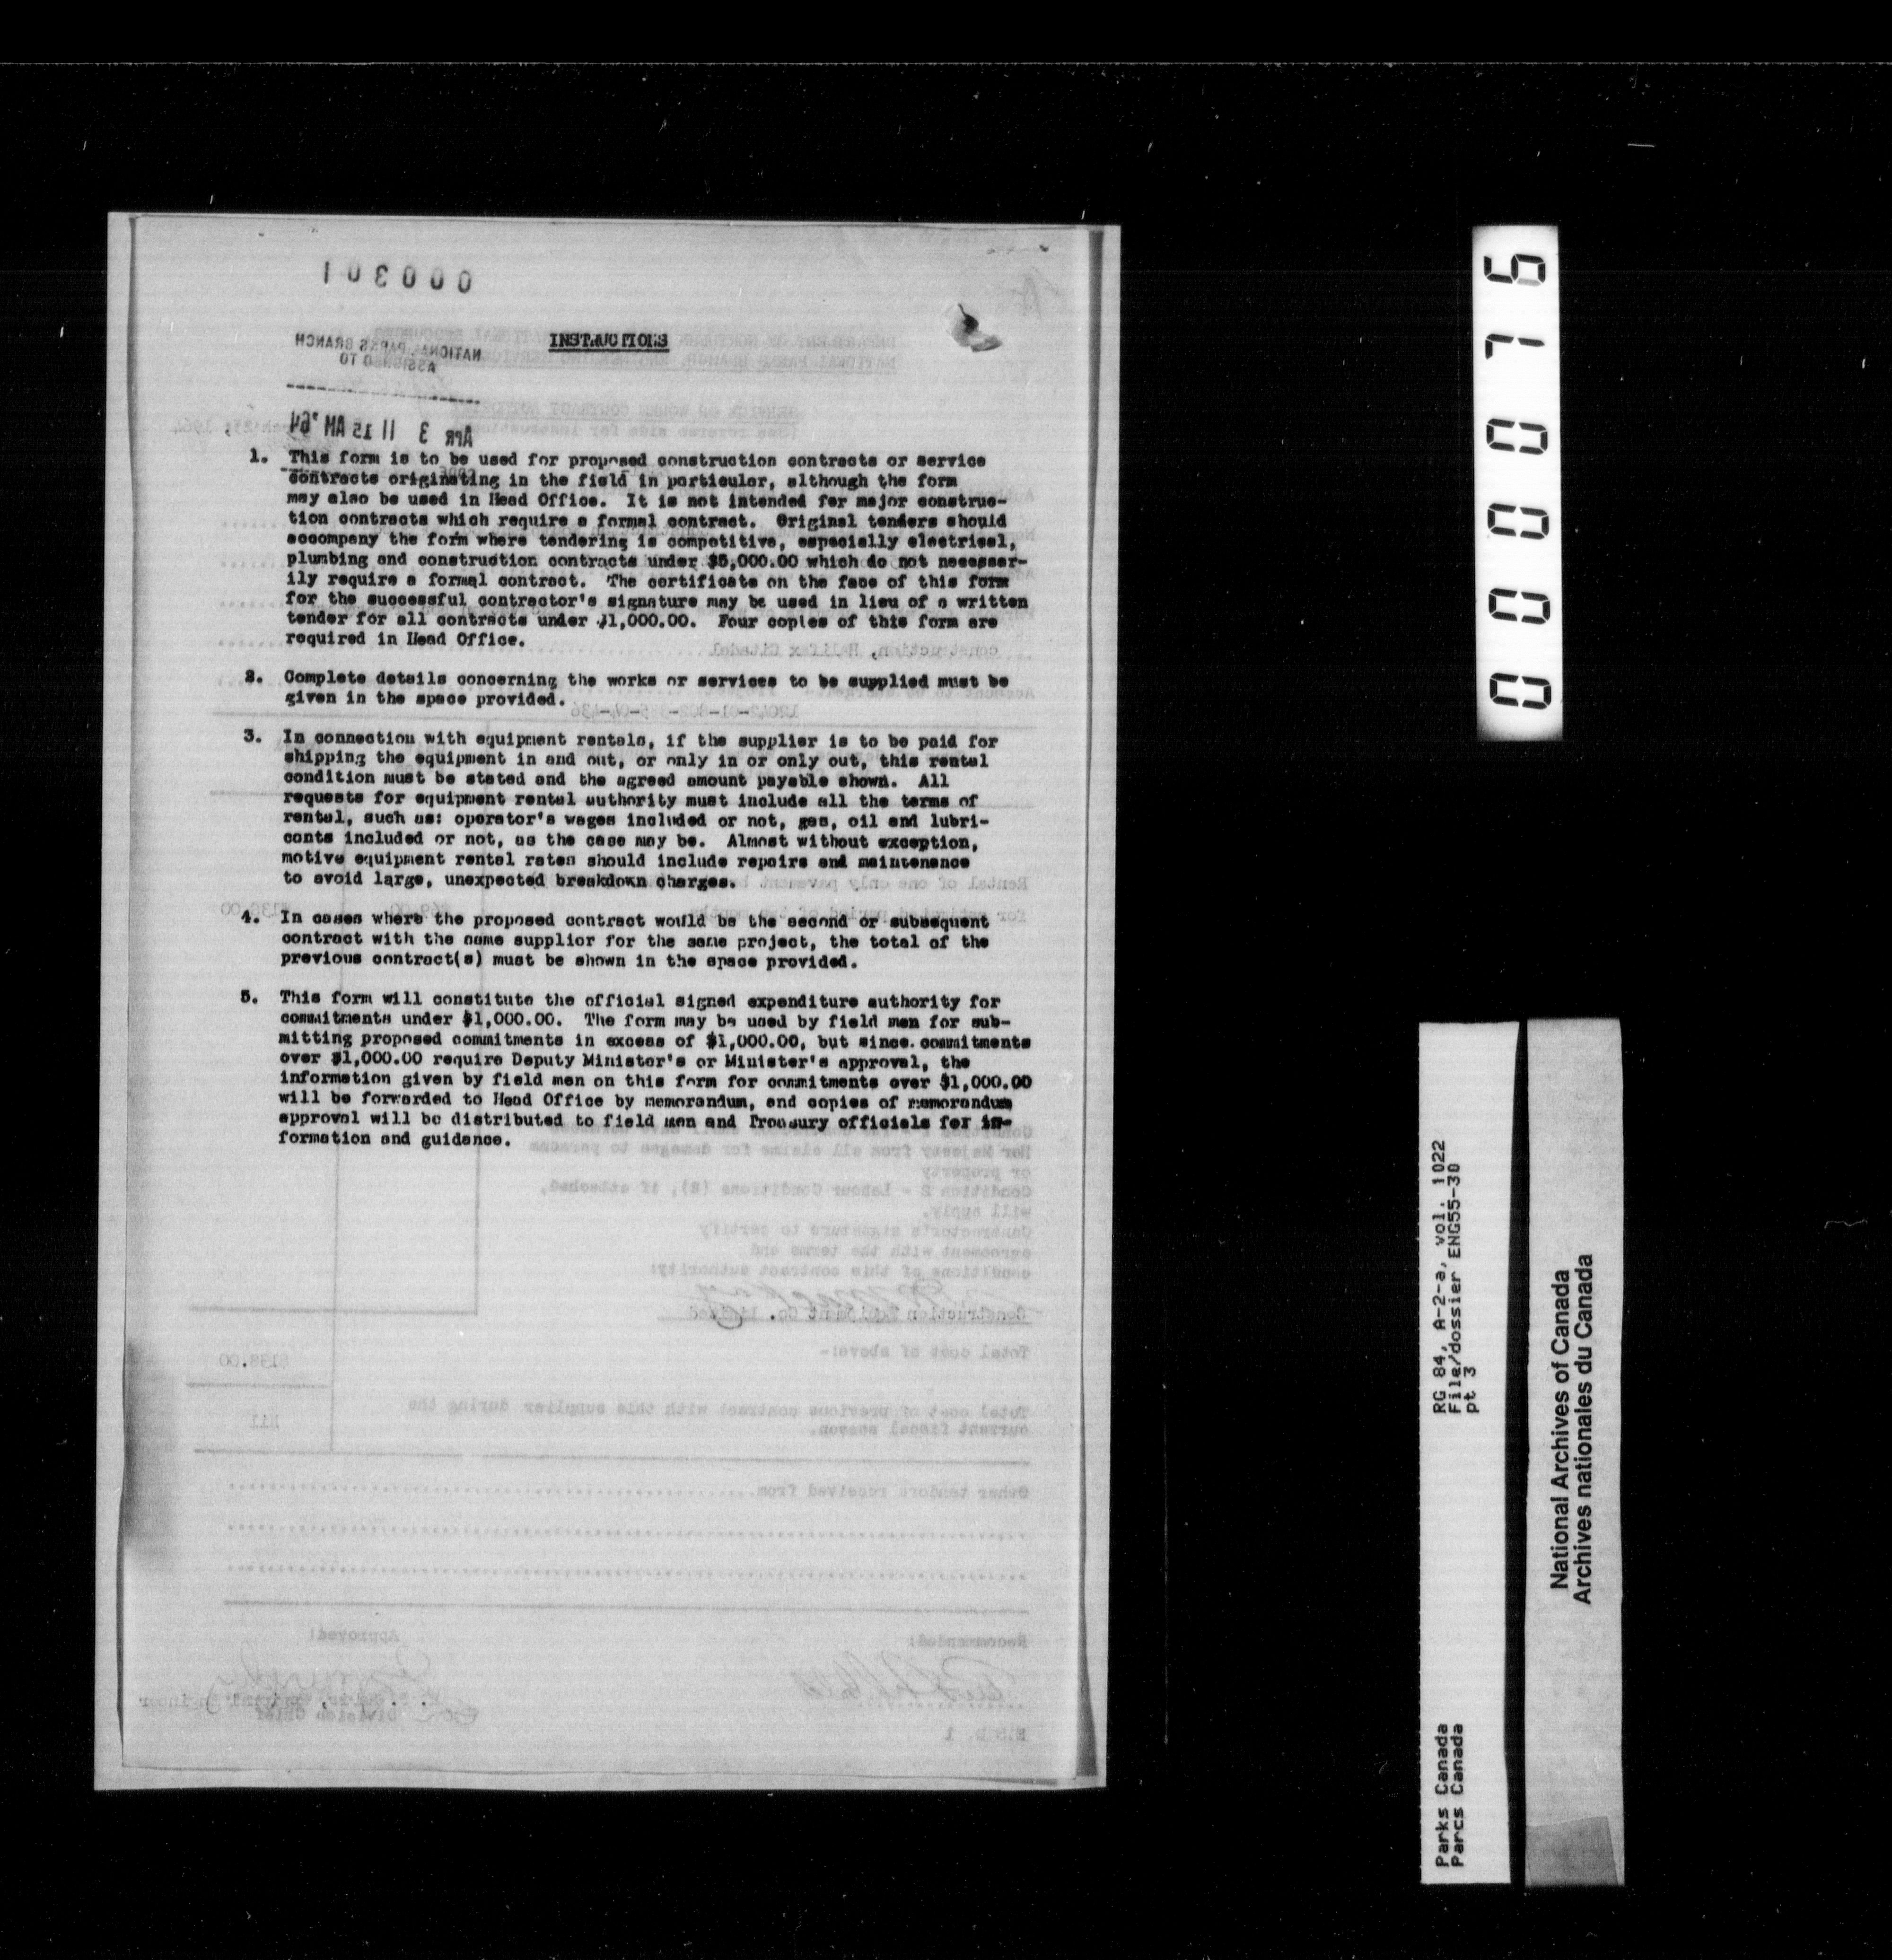 000301
NATIONAL PARKS BRANCH
ASSIGNED TO
APR 3 11 15 AM '64
INSTRUCTIONS
1. This form is to be used for proposed construction contracts or service
contracts originating in the field in particular, although the form
may also be used in Head Office. It is not intended for major construc-
tion contracts which require a formal contract. Original tenders should
accompany the form where tendering is competitive, especially electrical,
plumbing and construction contracts under $5,000.00 which do not necessar-
ily require a formal contract. The certificate on the face of this form
for the successful contractor's signature may be used in lieu of a written
tender for all contracts under $1,000.00. Four copies of this form are
required in Head Office.
2. Complete details concerning the works or services to be supplied must be
given in the space provided.
3. In connection with equipment rentals, if the supplier is to be paid for
shipping the equipment in and out, or only in or only out, this rental
condition must be stated and the agreed amount payable shown. All
requests for equipment rental authority must include all the terms of
rental, such as: operator's wages included or not, gas, oil and lubri-
cants included or not, as the case may be. Almost without exception,
motive equipment rental rates should include repairs and maintenance
to avoid large, unexpected breakdown charges.
4. In cases where the proposed contract would be the second or subsequent
contract with the same supplier for the same project, the total of the
previous contract(s) must be shown in the space provided.
5. This form will constitute the official signed expenditure authority for
commitments under $1,000.00. The form may be used by field men for sub-
mitting proposed commitments in excess of $1,000.00, but since commitments
over $1,000.00 require Deputy Minister's or Minister's approval, the
information given by field men on this form for commitments over $1,000.00
will be forwarded to Head Office by memorandum, and copies of memorandum
approval will be distributed to field men and Treasury officials for in-
formation and guidance.
or property
Condition 2 - Labour Conditions (B), if attached,
will apply.
Contractor's signature to certify
agreement with the terms and
conditions of this contract authority:
Construction Equipment Co. Limited
Total cost of above:-
$138.00
Total cost of previous contract with this supplier during the
current fiscal season.
Nil
Other tenders received from
Recommended:
Approved:
Division Chief
000076
RG 84, A-2-a, vol. 1022
File/dossier ENG55-30
pt 3
Parks Canada
Parcs Canada
National Archives of Canada
Archives nationales du Canada